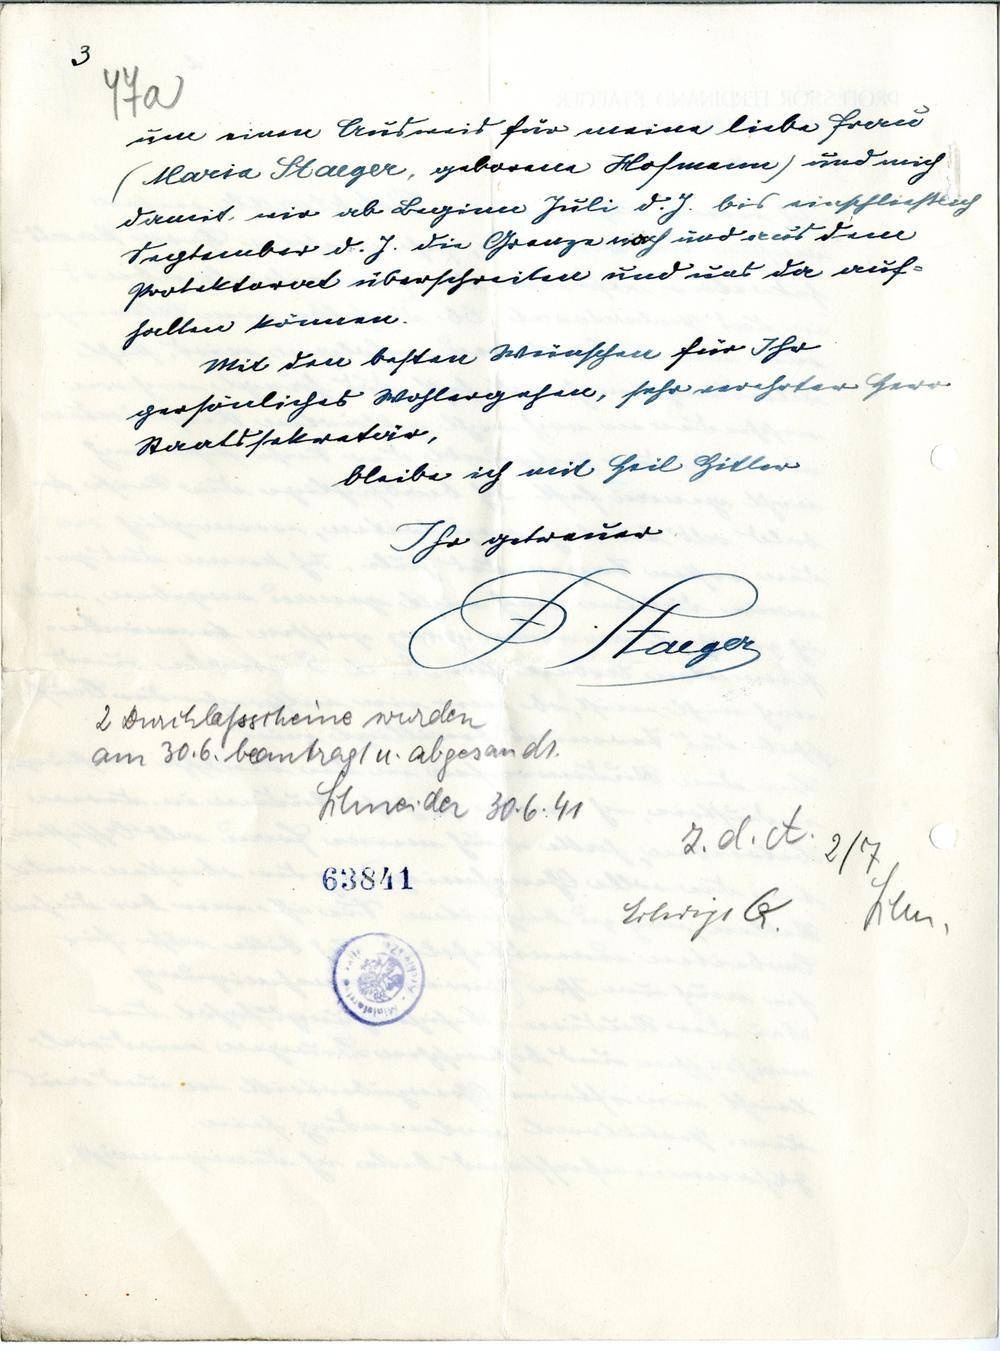 3
47a
um einen Ausweis für meine liebe Frau
(Maria Staeger, geborene Hofmann) und mich
damit wir ab Beginn Juli d. J. bis einschließlich
September d. J. die Grenze nach und aus dem
Protektorat überschreiten und uns da auf=
halten können.
Mit den besten Wünschen für Ihr
persönliches Wohlergehen, sehr verehrter Herr
Staatssekretär,
bleibe ich mit Heil Hitler
Ihr getreuer
F. Staeger
2 Durchlaßscheine wurden
am 30.6. beantragt u. abgesandt.
Schneider 30.6.41
z. d. A. 2/7
63841